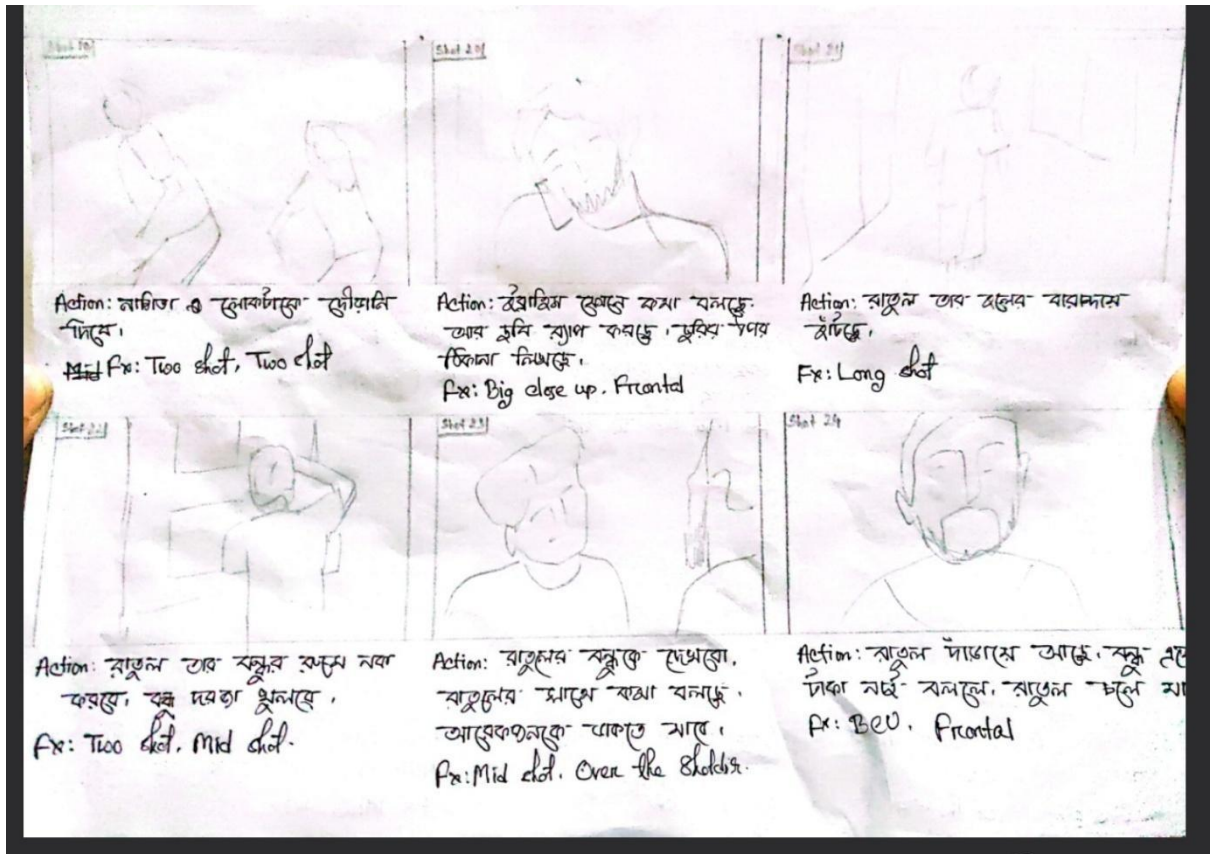 Shot 20
Action: নাসিতা ও লোকটাকে দৌড়ানি
দিবে।
Fx: Two shot, Two shot
Action: ইয়াসিম ফোনে কথা বলছে.
আর ছবি ব্যাগ করছে। ছুরির উপর
ঠিকানা লিখছে।
Fx: Big close up. Frontal
Shot 21
Action: রাতুল তার হলের বারান্দায়
হাঁটছে।
Fx: Long shot
Shot 22
Action: রাতুল তার বন্ধুর রুমে নক
করবে, বন্ধু দরজা খুলবে।
Fx: Two shot. Mid shot.
Shot 23
Action: রাতুলের বন্ধুকে দেখাবো.
রাতুলের সাথে কথা বলছে.
আরেকজনকে ডাকতে যাবে।
Fx: Mid shot. Over the Sholder.
Shot 24
Action: রাতুল দাঁড়ায়ে আছে. বন্ধু এসে
টাকা নাই বললে. রাতুল চলে যা
Fx: BCU. Frontal